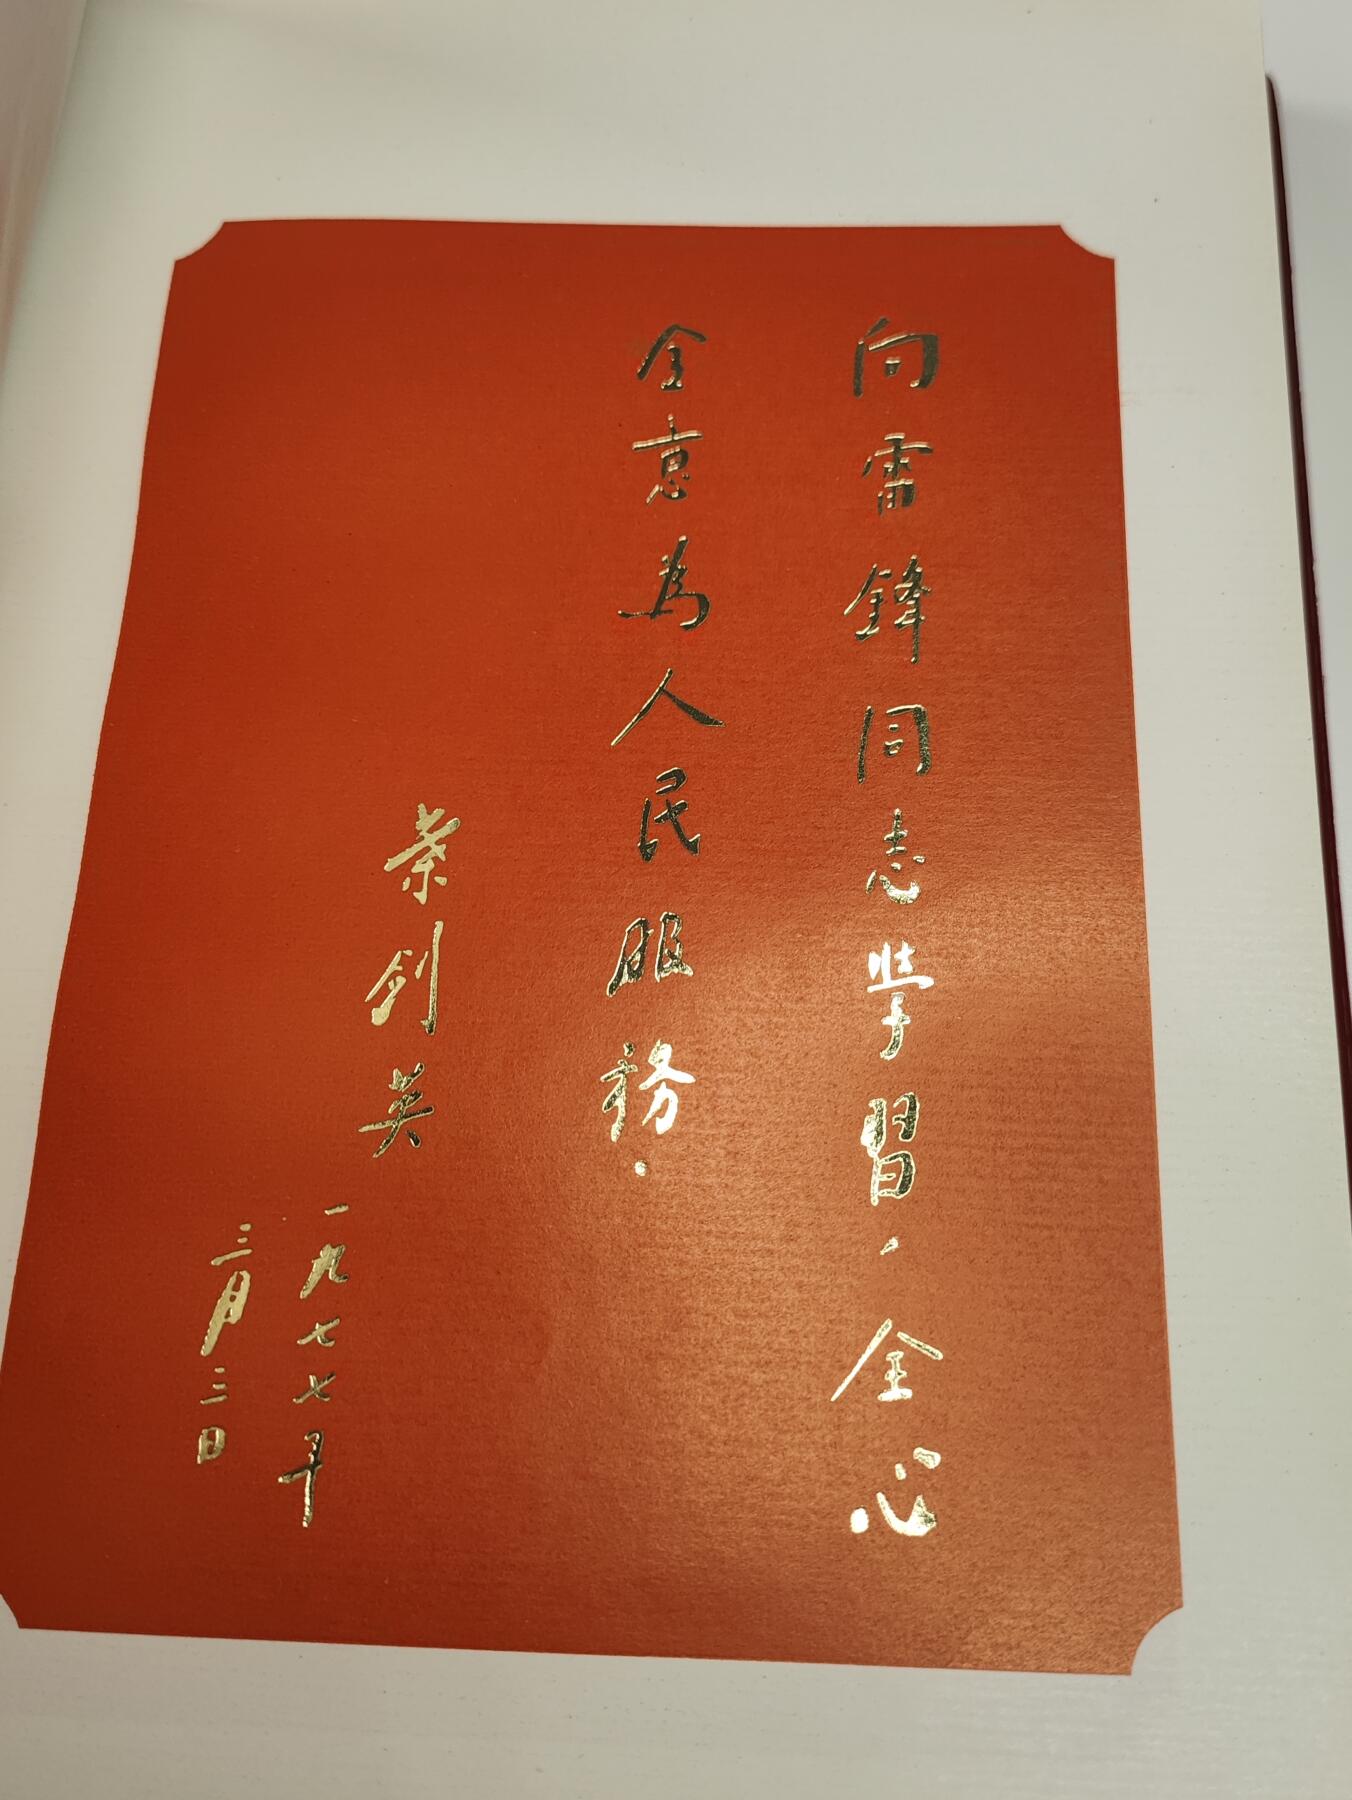 向雷鋒同志學習，全心
全意為人民服務．
葉剑英
一九七七年
三月三日